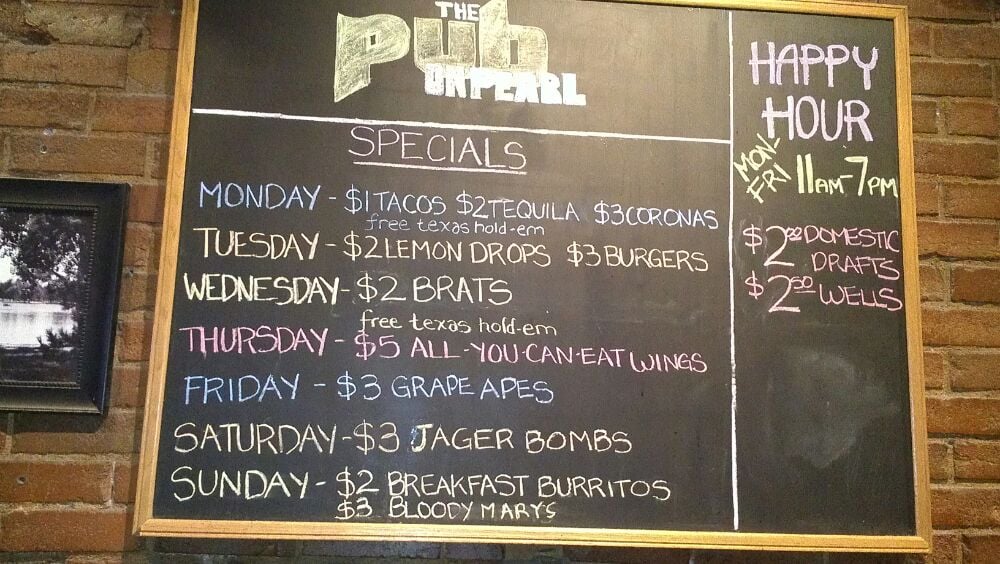 THE
PUB
ONPEARL
SPECIALS
MONDAY - $1 TACOS $2 TEQUILA $3 CORONAS
free texas hold-em
TUESDAY - $2 LEMON DROPS $3 BURGERS
WEDNESDAY - $2 BRATS
free texas hold-em
THURSDAY - $5 ALL-YOU-CAN-EAT WINGS
FRIDAY - $3 GRAPE APES
SATURDAY - $3 JAGER BOMBS
SUNDAY - $2 BREAKFAST BURRITOS
$3 BLOODY MARYS
HAPPY
HOUR
MON-
FRI 11AM-7PM
$2.00 DOMESTIC
DRAFTS
$2.50 WELLS